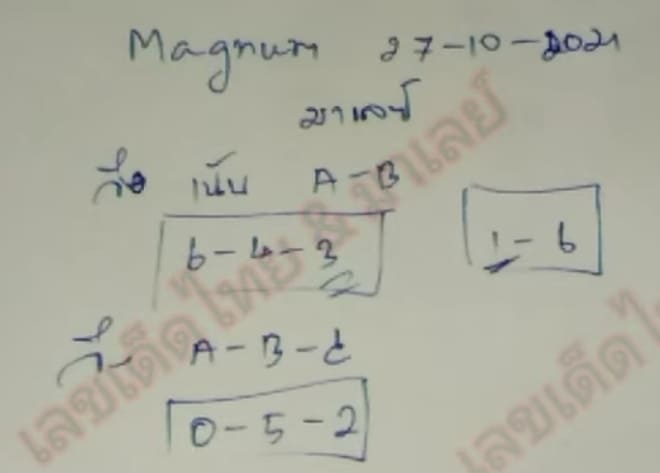 Magnum 27-10-2021
มาเลย์
วิ่ง เน้น A-B
6-4-3 1-6
วิ่ง A-B-C
0-5-2
เลขเด็ดไทย & มาเลย์
เลขเด็ดไ